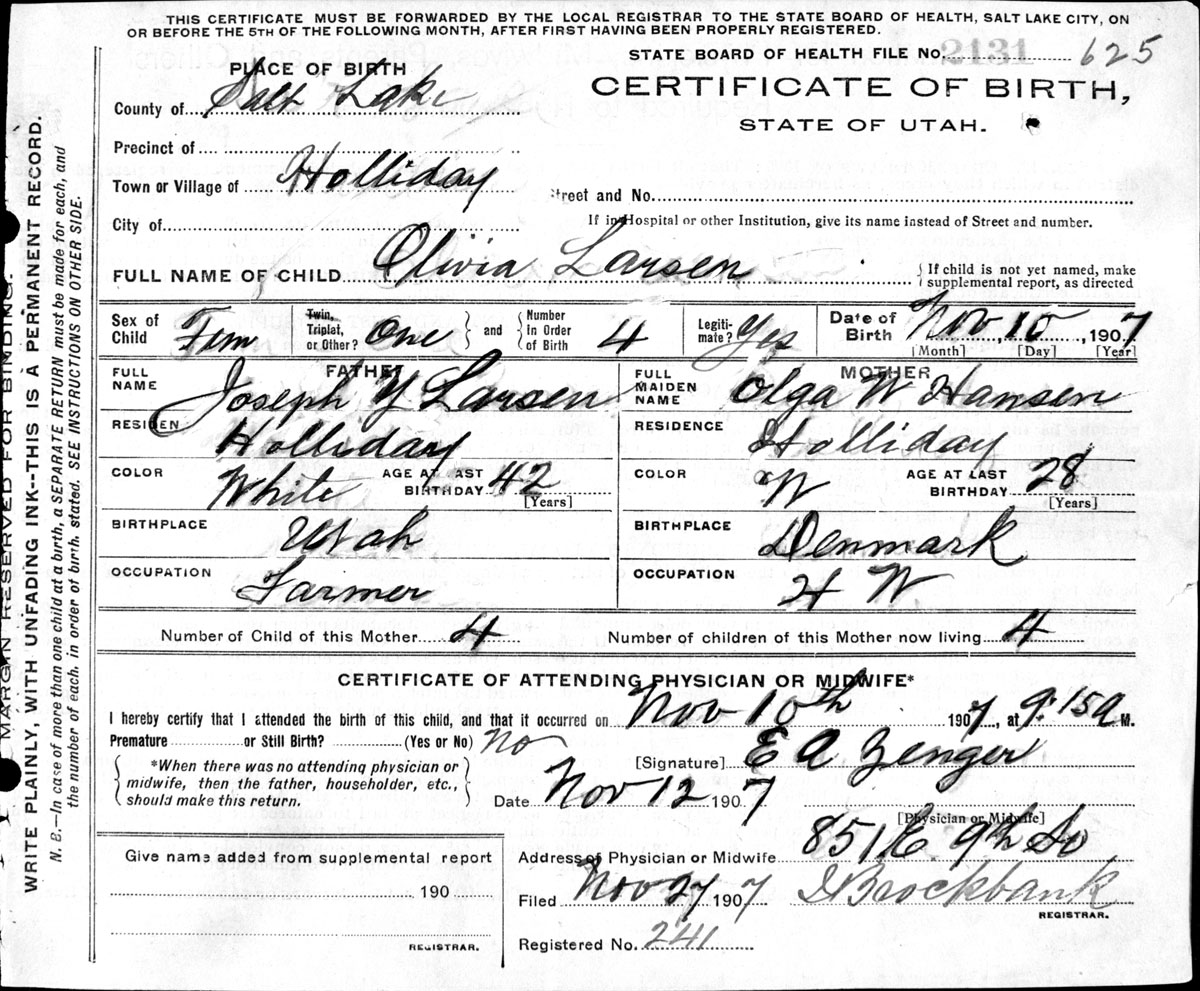 THIS CERTIFICATE MUST BE FORWARDED BY THE LOCAL REGISTRAR TO THE STATE BOARD OF HEALTH, SALT LAKE CITY, ON
OR BEFORE THE 5TH OF THE FOLLOWING MONTH, AFTER FIRST HAVING BEEN PROPERLY REGISTERED.
STATE BOARD OF HEALTH FILE No. 2131 625
PLACE OF BIRTH
CERTIFICATE OF BIRTH,
County of Salt Lake
STATE OF UTAH.
Precinct of
Town or Village of Holliday
Street and No.
City of
If in Hospital or other Institution, give its name instead of Street and number.
FULL NAME OF CHILD Olivia Larsen
If child is not yet named, make
supplemental report, as directed
Sex of Child Fem
Twin, Triplet, or Other? One
and Number in Order of Birth 4
Legiti-mate? Yes
Date of Birth Nov 10, 1907
[Month] [Day] [Year]
FATHER
MOTHER
FULL NAME Joseph Y Larsen
FULL MAIDEN NAME Olga W Hansen
RESIDEN Holliday
RESIDENCE Holliday
COLOR White
AGE AT LAST BIRTHDAY 42
[Years]
COLOR W
AGE AT LAST BIRTHDAY 28
[Years]
BIRTHPLACE Utah
BIRTHPLACE Denmark
OCCUPATION Farmer
OCCUPATION H W
Number of Child of this Mother 4
Number of children of this Mother now living 4
CERTIFICATE OF ATTENDING PHYSICIAN OR MIDWIFE*
I hereby certify that I attended the birth of this child, and that it occurred on Nov 10th 1907, at 9:15 a M.
Premature or Still Birth? (Yes or No) No
[Signature] E A Zenger
*When there was no attending physician or
midwife, then the father, householder, etc.,
should make this return.
Date Nov 12 1907
[Physician or Midwife]
Give name added from supplemental report
190
REGISTRAR.
Address of Physician or Midwife 851 E. 9th So
Filed Nov 27 1907
Brockbank
REGISTRAR.
Registered No. 241
MARGIN RESERVED FOR BINDING.
WRITE PLAINLY, WITH UNFADING INK--THIS IS A PERMANENT RECORD.
N. B.—In case of more than one child at a birth, a SEPARATE RETURN must be made for each, and
the number of each, in order of birth, stated. SEE INSTRUCTIONS ON OTHER SIDE.